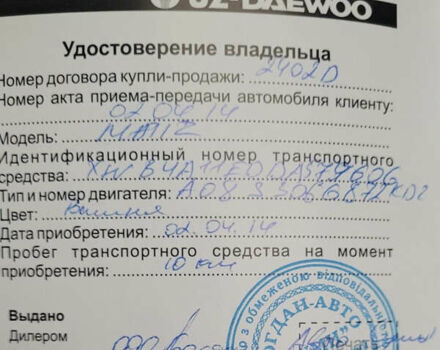 UZ-DAEWOO
Удостоверение владельца
Номер договора купли-продажи: 2402D
Номер акта приема-передачи автомобиля клиенту:
02.04.14
Модель: MATIZ
Идентификационный номер транспортного
средства:
Тип и номер двигателя:
Цвет: вишня
Дата приобретения: 02.04.14
Пробег транспортного средства на момент
приобретения: 10 км
Выдано
Дилером ООО
з обмеженою відповідальністю
БОГДАН-АВТО
Печать